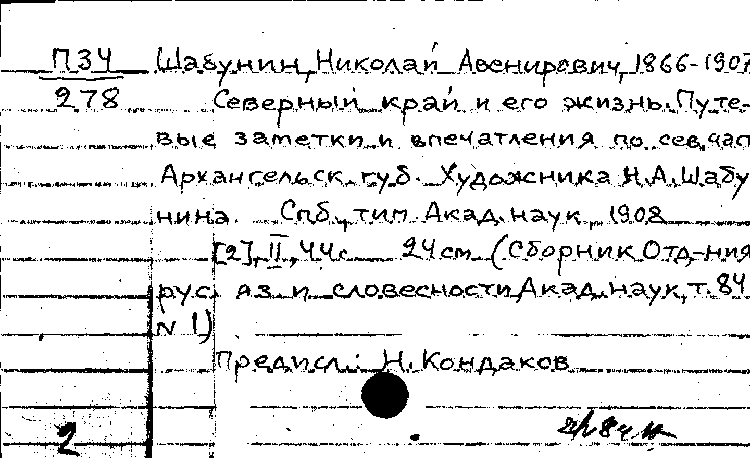 П34 Шабунин, Николай Авенирович, 1866-1907
278 Северный край и его жизнь. Путе-
вые заметки и впечатления по сев. час
Архангельск. губ. Художника Н.А. Шабу
нина. Спб, тип. Акад. наук, 1908
[2], II, 44 с. 24 cm (Сборник Отд-ния
рус. яз и словесности Акад. наук, т. 84
N 1)
Предисл.: Н. Кондаков
2